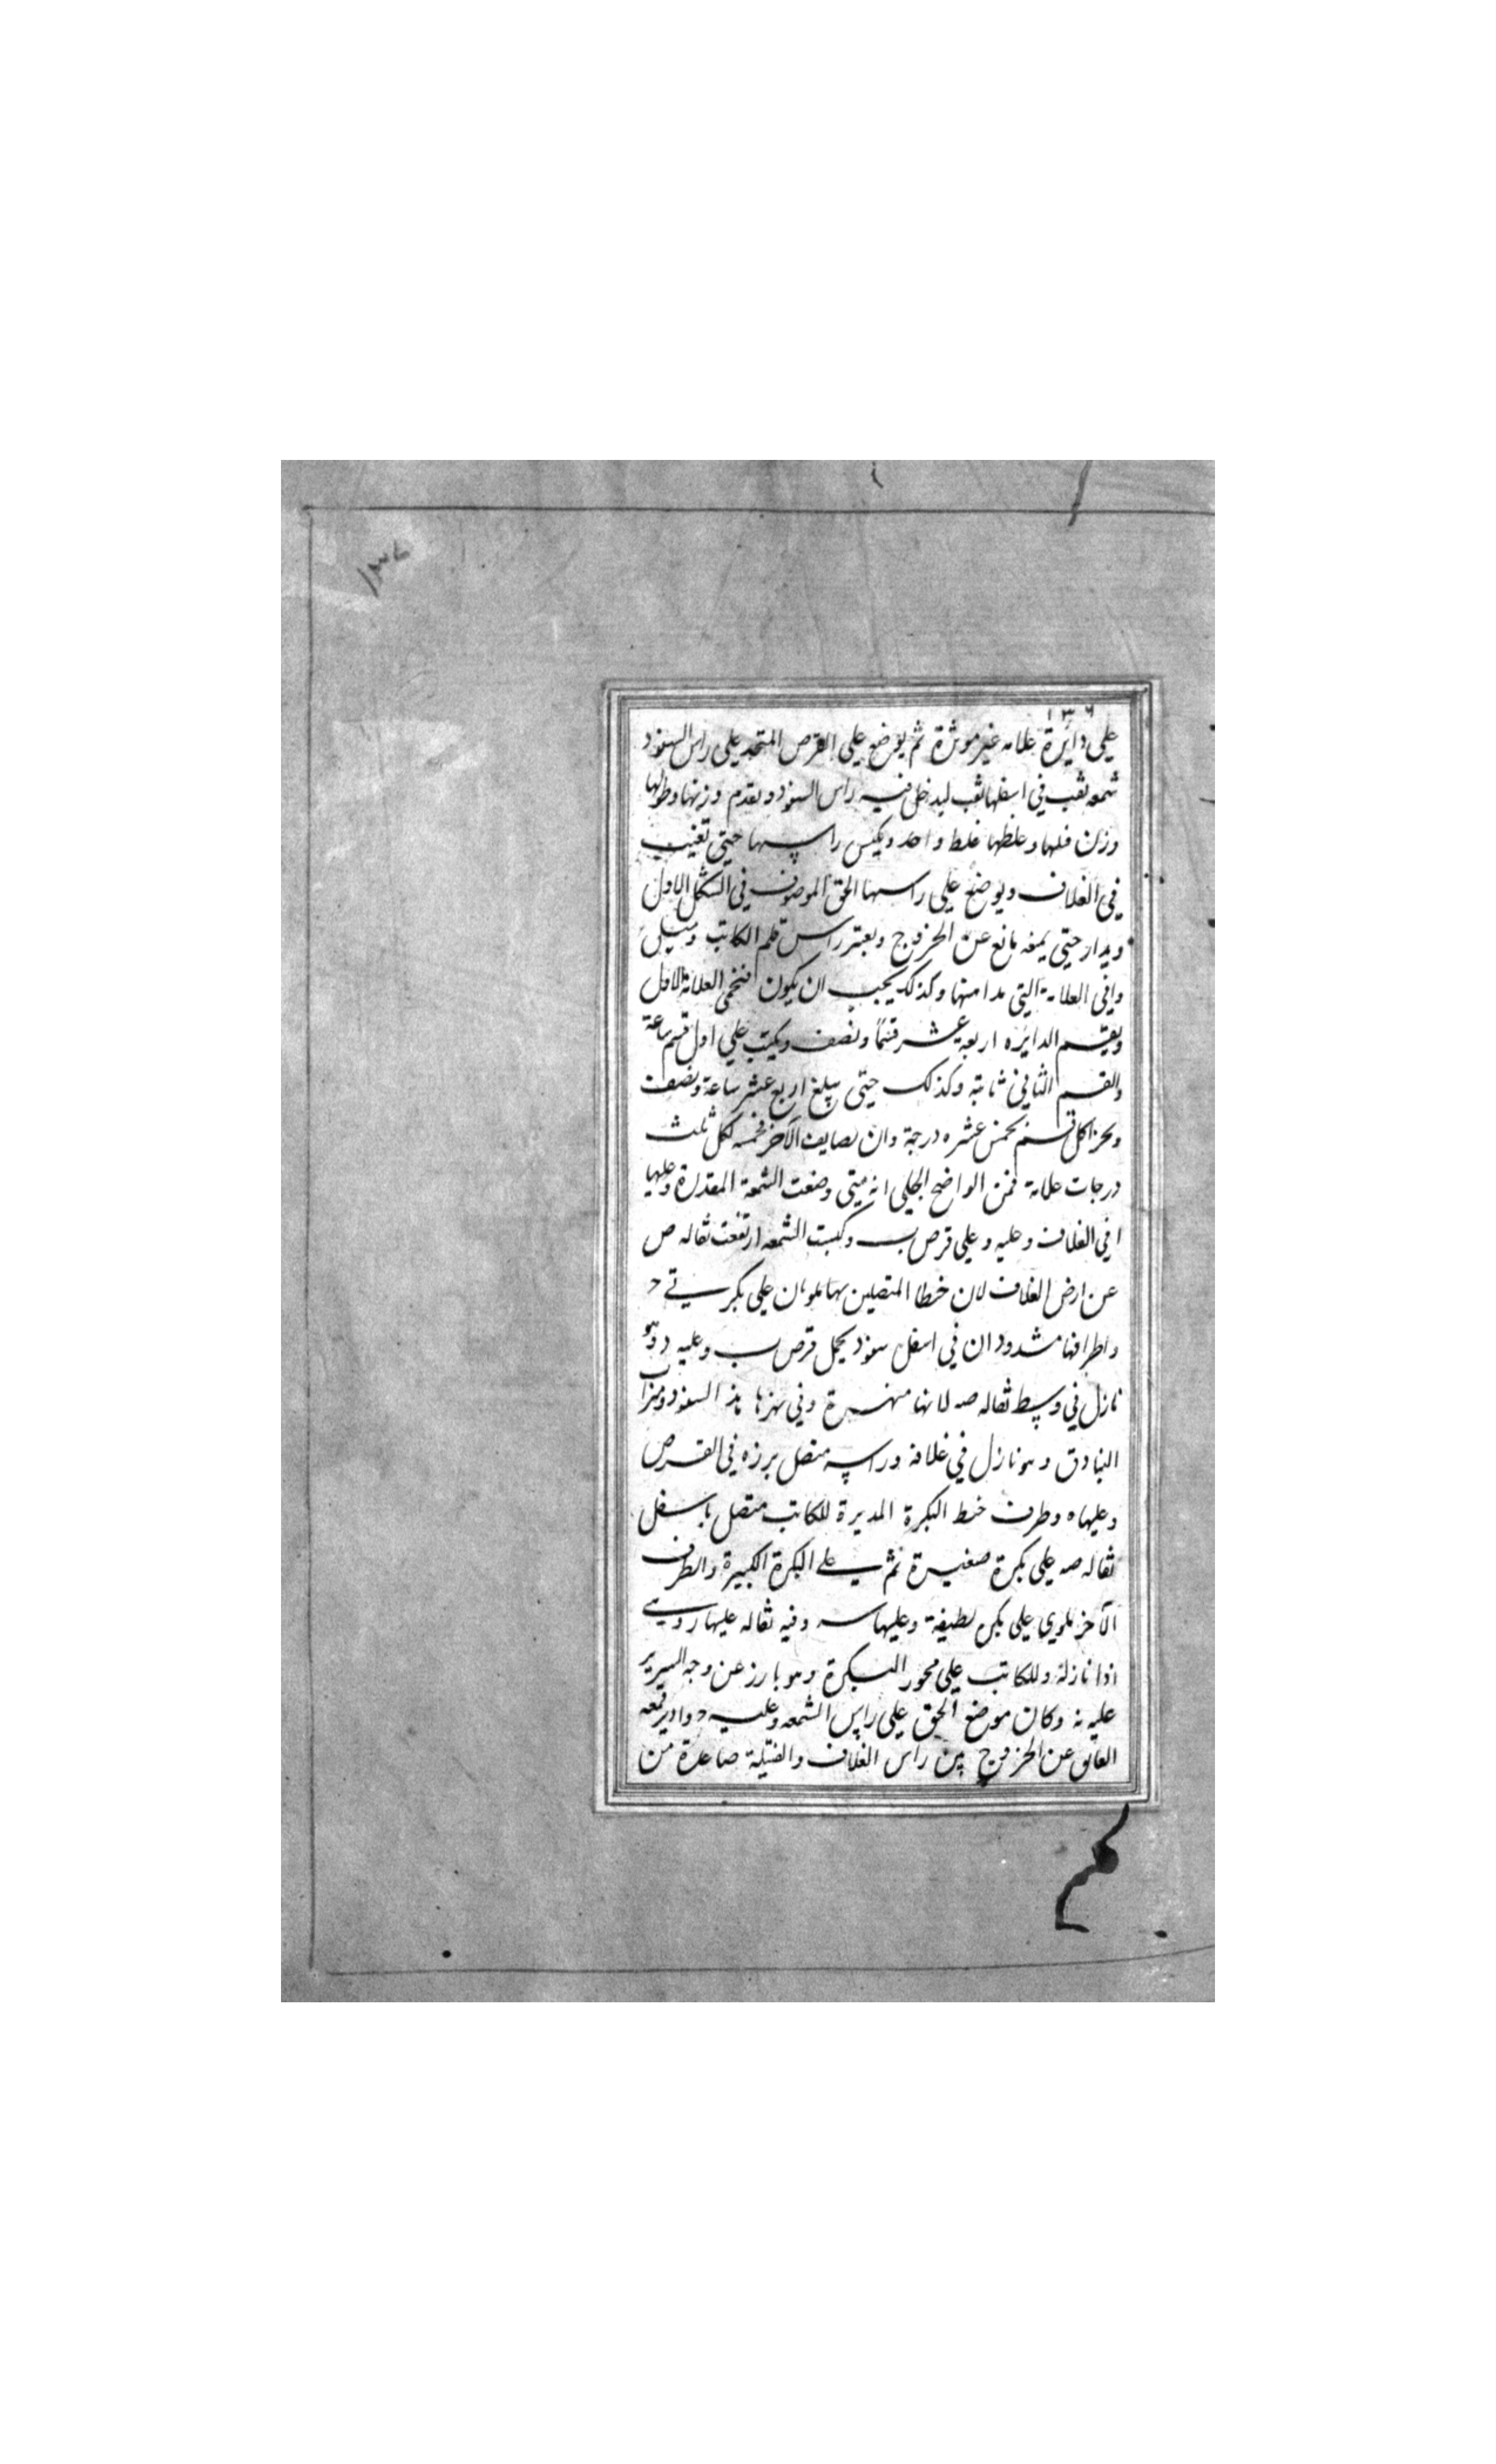 ١٣٦
١٣٦
علي دائرة علامه غير موثرة ثم يوضع علي القرص المتحد علي راس السفود
شمعه ثقب في اسفلها ثقب ليدخل فيه راس السفود وبقدم وزنها وطولها
وزن فلها وغلظها غلظ واحد ويكبس راسها حتي تغيب
في الغلاف ويوضع علي راسها الحق الموصوف في الشكل الاول
ويدار حتي يمنعه مانع عن الخروج ويعتبر راس قلم الكاتب
وافي العلامة التي مدا منها وكذلك يجب ان يكون العلامة الاول
ويقسم الدايره اربعه عشر قسمًا ونصف ويكتب علي اول قسم ساعة
والقسم الثاني ثانية وكذلك حتي يبلغ اربع عشر ساعة ونصف
ويحزا كل قسم بخمس عشره درجة وان تضايف الآخر فخمسه لكل ثلث
درجات علامة فمن الواضح الجلي انه متي وضعت الشمعة المقدرة وعليها
ا في الغلاف وعليه و علي قرص ب وكبست الشمعه ارتفعت ثقاله ص
عن ارض الغلاف لان خطا المتصلين بها يلويان علي بكرتي ح
واطرافها مشدودان في اسفل سفود يحمل قرص ب وعليه د وهو
نازل في وسط ثقاله صه لانها منهرة وفي نهرها هذا السفود وميزاب
البنادق وهو نازل في غلافه وراسه متصل برزه في القرص
وعليها ه وطرف خيط البكرة المديرة للكاتب متصل باسفل
ثقاله صه علي بكرة صغيرة ثم علي البكرة الكبيرة والطرف
الآخر يلوي علي بكره لطيفة وعليها سه وفيه ثقاله عليها ر وهي
اذا نازلة وللكاتب علي محور البكرة وهو بارز عن وجه السرير
عليه نه وكان موضع الحق علي راس الشمعه وعليه ح وادير فمعه
العائق عن الخروج من راس الغلاف والفتيلة صاعدة من